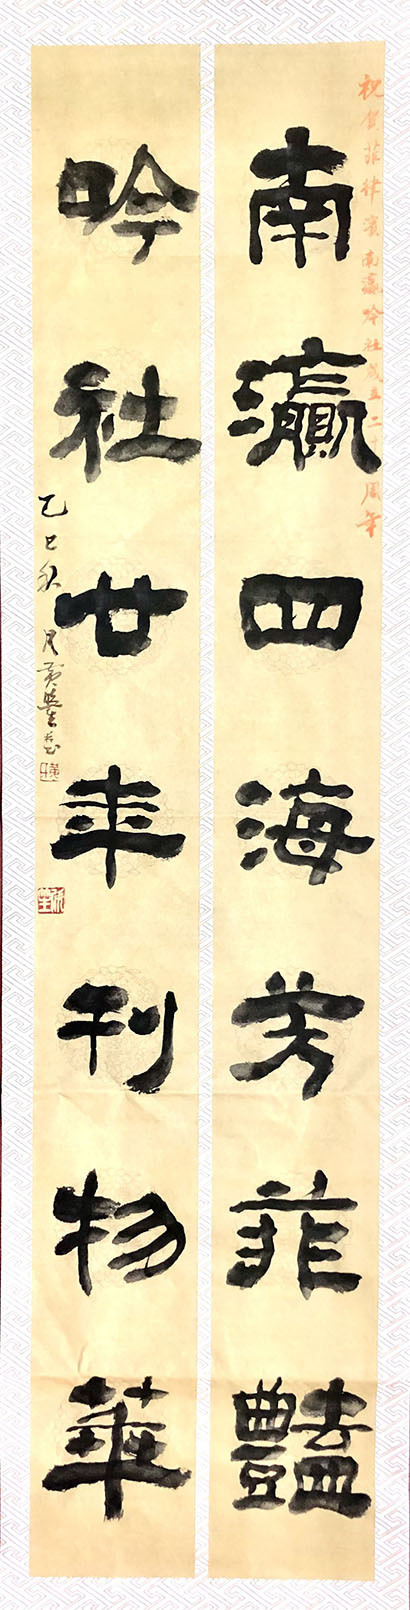 祝賀菲律賓南瀛吟社成立二十周年
南瀛四海芳菲豔
吟社廿年刊物華
乙巳秋月黃